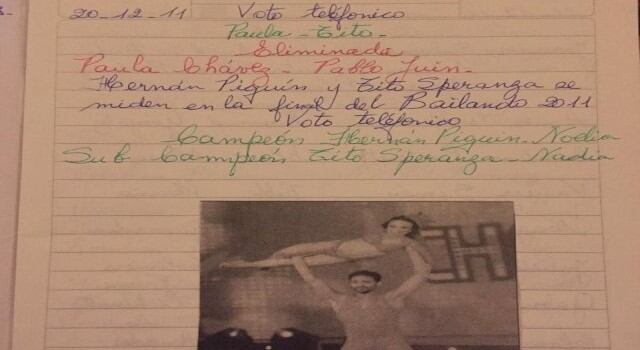 20-12-11 Voto teléfonico
Paula - Tito -
Eliminada
Paula Chávez - Pablo Juin -
Hernán Piquín y Tito Speranza se
miden en la final del Bailando 2011
Voto teléfonico
Campeón Hernán Piquin - Noelia
Sub Campeón Tito Speranza - Nadia